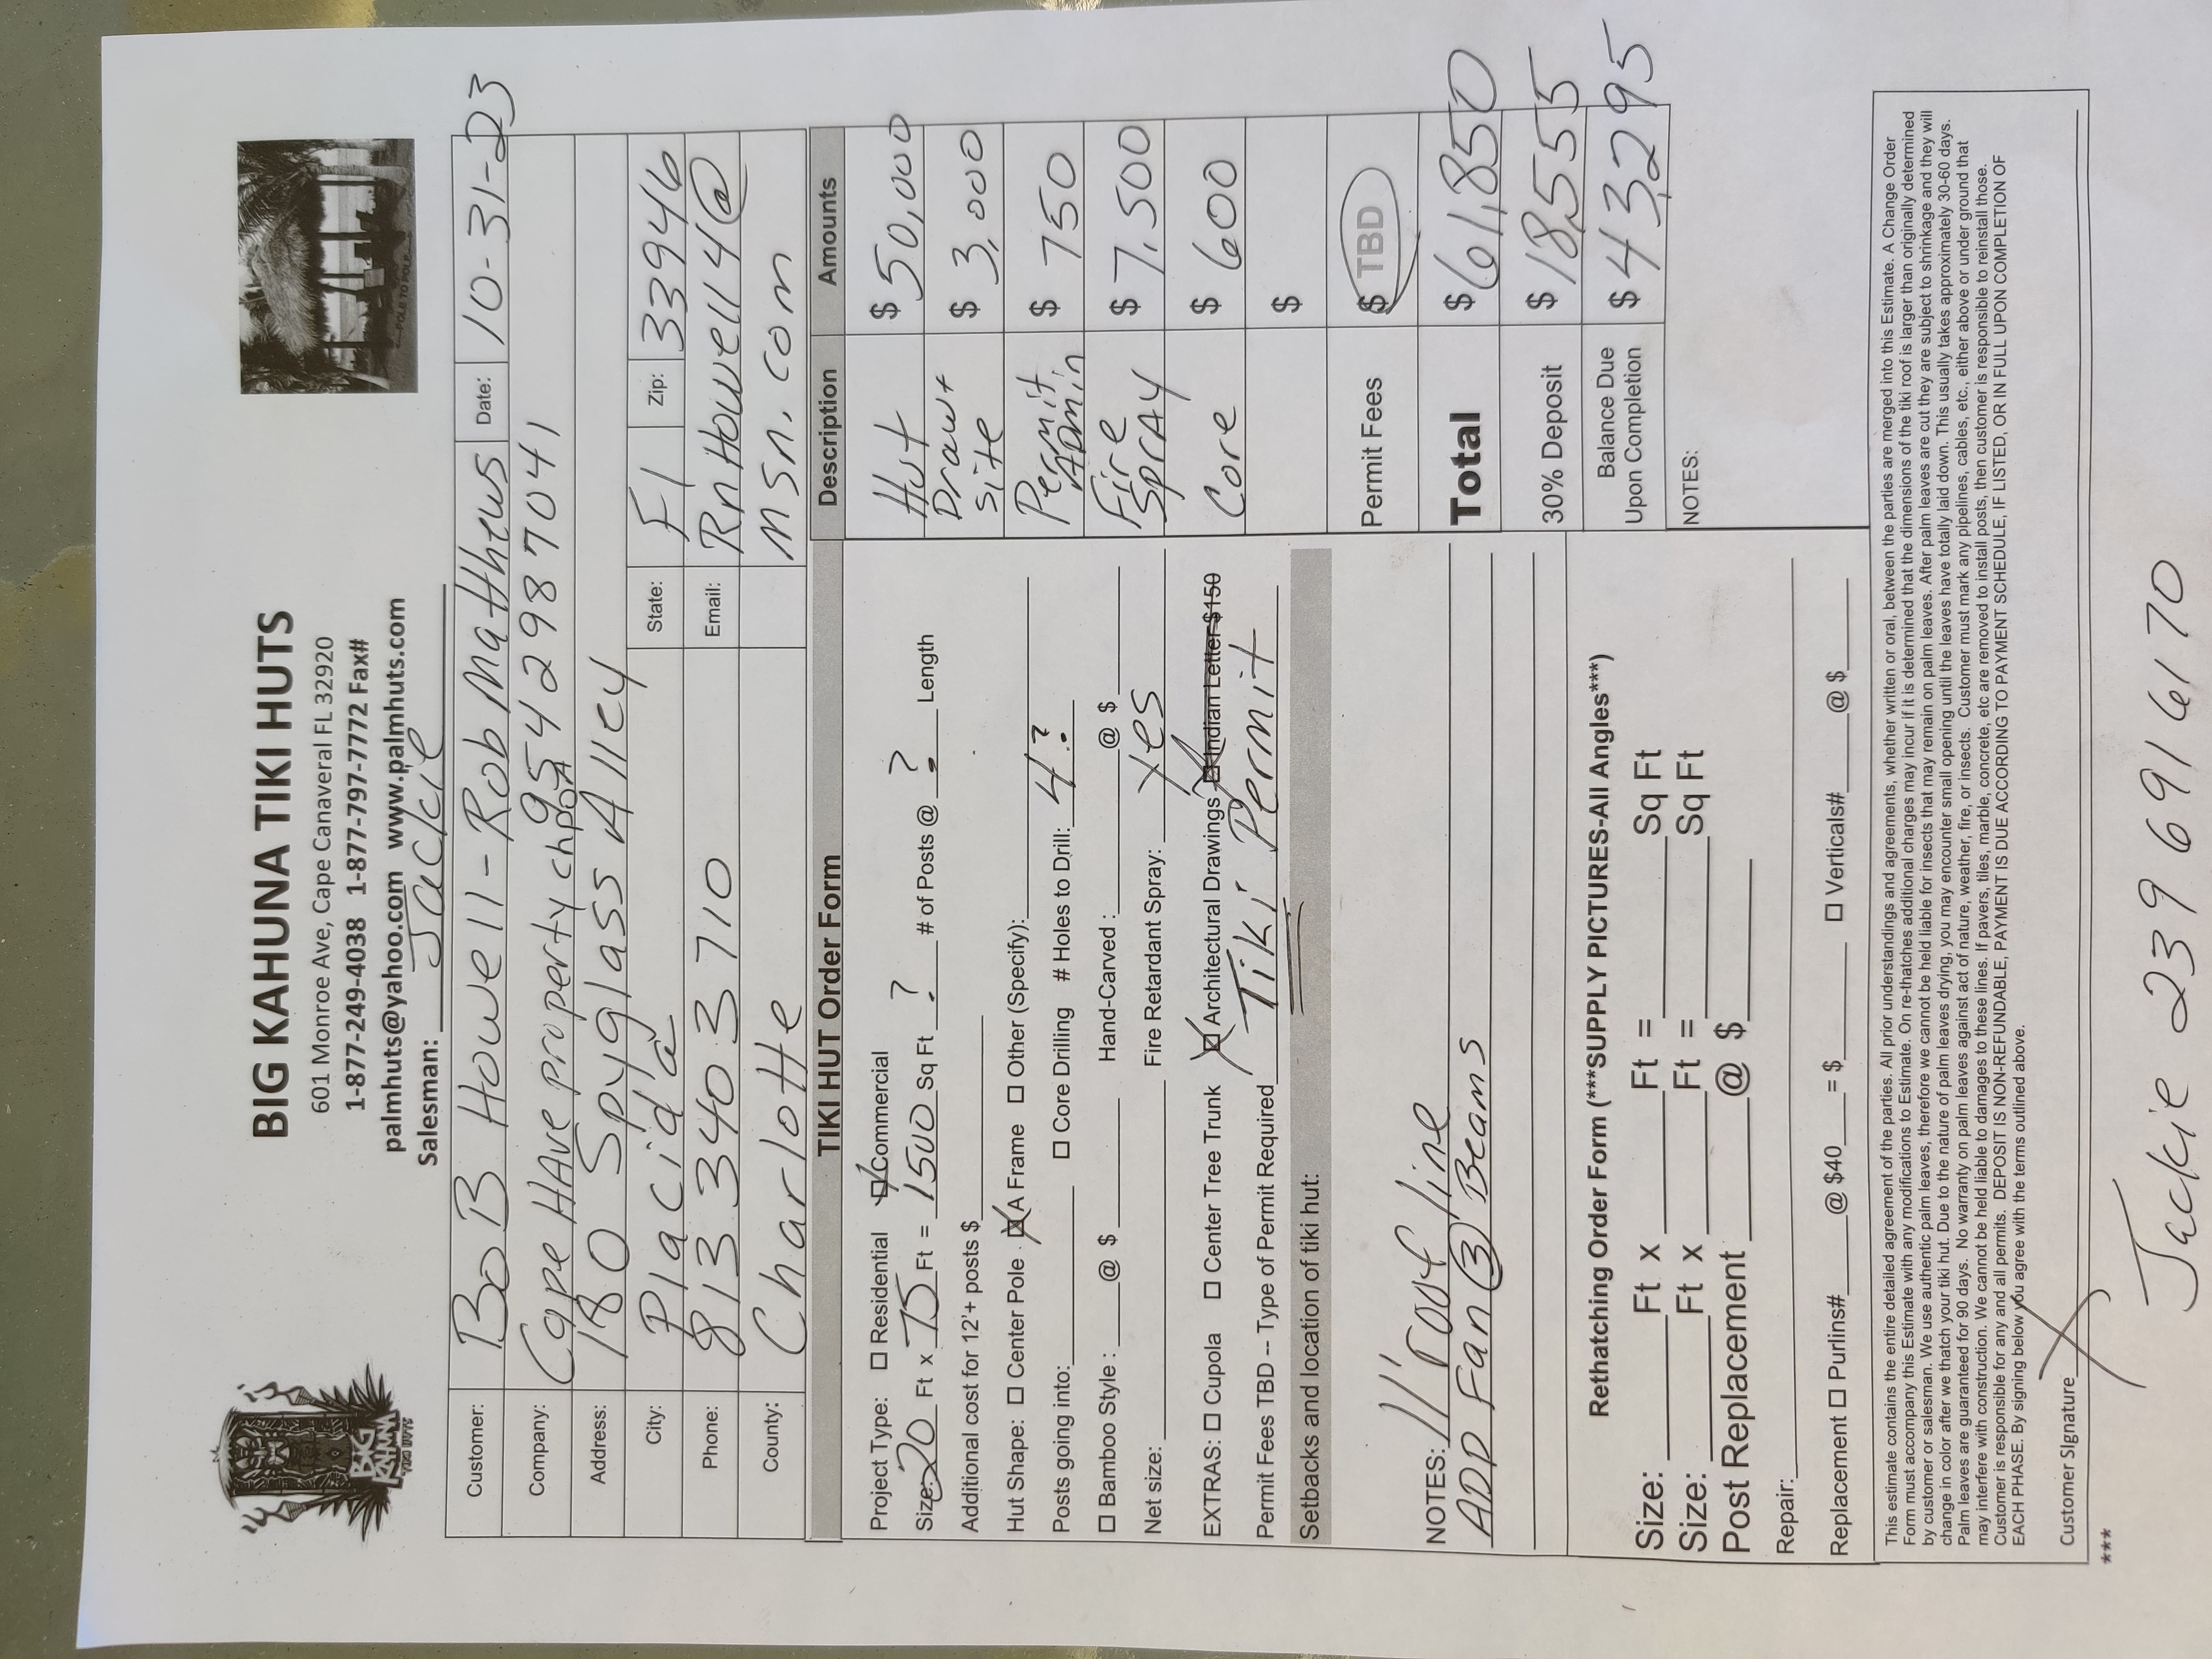 BIG KAHUNA TIKI HUTS
601 Monroe Ave, Cape Canaveral FL 32920
1-877-249-4038 1-877-797-7772 Fax#
palmhuts@yahoo.com www.palmhuts.com
Salesman: Jackie
BIG KAHUNA TIKI HUTS
POLE TO POLE
Customer: BoB Howell - Rob Matthews Date: 10-31-23
Company: Cape HAve property chpoA 954 298 7041
Address: 180 Spyglass Alley
City: Placida State: Fl Zip: 33946
Phone: 813 340 3710 Email: RnHowell4@
County: Charlotte msn.com
TIKI HUT Order Form Description Amounts
Project Type: ☐ Residential ☒ Commercial
Size: 20 Ft x 75 Ft = 1500 Sq Ft ? # of Posts @ ? Length
Additional cost for 12'+ posts $
Hut Shape: ☐ Center Pole ☒ A Frame ☐ Other (Specify):
Posts going into: ☐ Core Drilling # Holes to Drill: 4?
☐ Bamboo Style : @ $ Hand-Carved : @ $
Net size: Fire Retardant Spray: Yes
EXTRAS: ☐ Cupola ☐ Center Tree Trunk ☒ Architectural Drawings ☒ Indian Letter $150
Permit Fees TBD -- Type of Permit Required Tiki Permit
Setbacks and location of tiki hut:
NOTES: 11' roof line
ADD Fan (3) Beams
Hut $ 50,000
Draw+ site $ 3,000
Permit ADmin $ 750
Fire SprAy $ 7,500
Core $ 600
$
Permit Fees $ TBD
Total $ 61,850
30% Deposit $ 18,555
Balance Due
Upon Completion $ 43,295
NOTES:
Rethatching Order Form (***SUPPLY PICTURES-All Angles***)
Size: Ft x Ft = Sq Ft
Size: Ft x Ft = Sq Ft
Post Replacement @ $
Repair:
Replacement ☐ Purlins# @ $40 = $ ☐ Verticals# @ $
This estimate contains the entire detailed agreement of the parties. All prior understandings and agreements, whether written or oral, between the parties are merged into this Estimate. A Change Order
Form must accompany this Estimate with any modifications to Estimate. On re-thatches additional charges may incur if it is determined that the dimensions of the tiki roof is larger than originally determined
by customer or salesman. We use authentic palm leaves, therefore we cannot be held liable for insects that may remain on palm leaves. After palm leaves are cut they are subject to shrinkage and they will
change in color after we thatch your tiki hut. Due to the nature of palm leaves drying, you may encounter small opening until the leaves have totally laid down. This usually takes approximately 30-60 days.
Palm leaves are guaranteed for 90 days. No warranty on palm leaves against act of nature, weather, fire, or insects. Customer must mark any pipelines, cables, etc., either above or under ground that
may interfere with construction. We cannot be held liable to damages to these lines. If pavers, tiles, marble, concrete, etc are removed to install posts, then customer is responsible to reinstall those.
Customer is responsible for any and all permits. DEPOSIT IS NON-REFUNDABLE, PAYMENT IS DUE ACCORDING TO PAYMENT SCHEDULE, IF LISTED, OR IN FULL UPON COMPLETION OF
EACH PHASE. By signing below you agree with the terms outlined above.
Customer SIgnature X
***
Jackie 239 691 6170